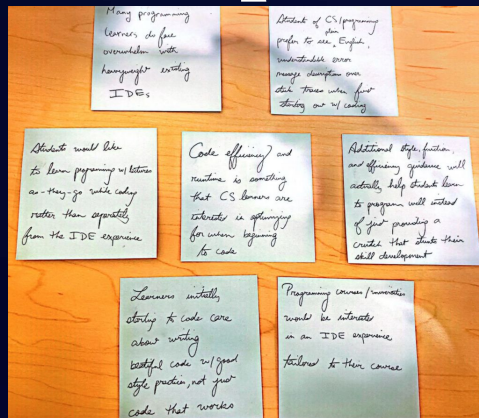 Many programming
learners do face
overwhelm with
heavyweight existing
IDEs
Students of CS/programming
prefer to see, plain English,
understandable error
message description over
stack traces when first
starting out w/ coding
Students would like
to learn programming w/ lectures
as-they-go while coding
rather than separately
from the IDE experience
Code efficiency and
runtime is something
that CS learners are
interested in optimizing
for when beginning
to code
Additional style, function,
and efficiency guidance will
actually help students learn
to program well instead
of just providing a
crutch that stunts their
skill development
Learners initially
starting to code care
about writing
beautiful code w/ good
style practices, not just
code that works
Programming courses/universities
would be interested
in an IDE experience
tailored to their course